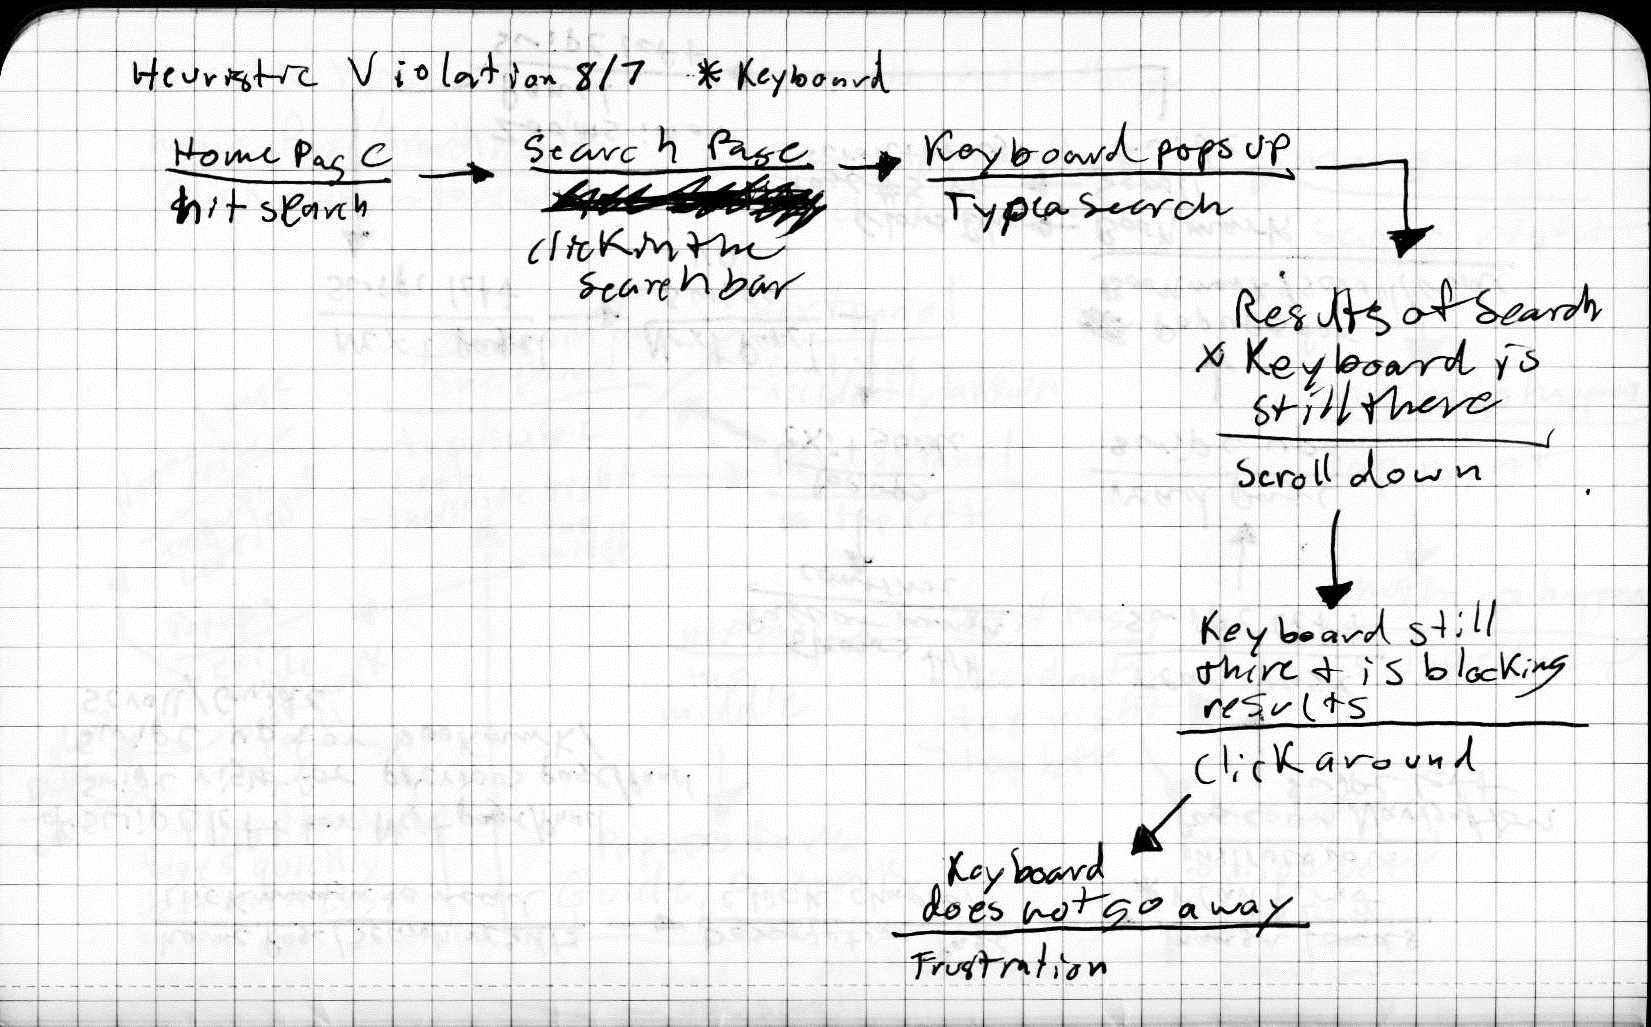 Heuristic Violation 8/7 * Keyboard
Home Page
hit search
Search Page
click in the
search bar
Keyboard pops up
Type a search
Results of Search
x Keyboard is
still there
Scroll down
Keyboard still
there + is blocking
results
Click around
Keyboard
does not go away
Frustration